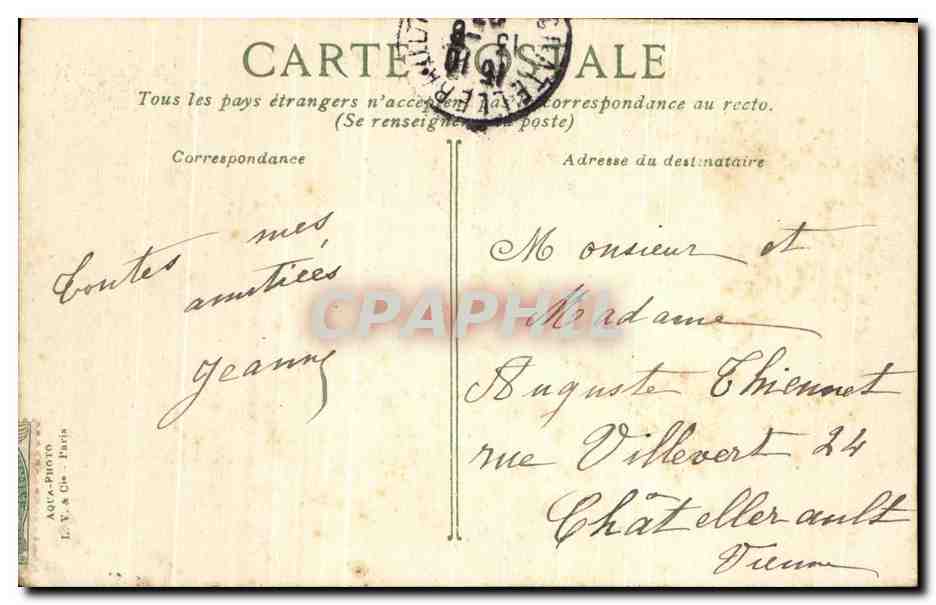 CARTE POSTALE
Tous les pays étrangers n'acceptent pas correspondance au recto.
(Se renseigner poste)
Correspondance
Adresse du destinataire
Toutes mes
amitiées
Jeanne
Monsieur et
Madame
Auguste Thiennet
rue Villevert 24
Châtellerault
Vienne
CPAPHIL
AQUA-PHOTO
L. V. & Cie - Paris